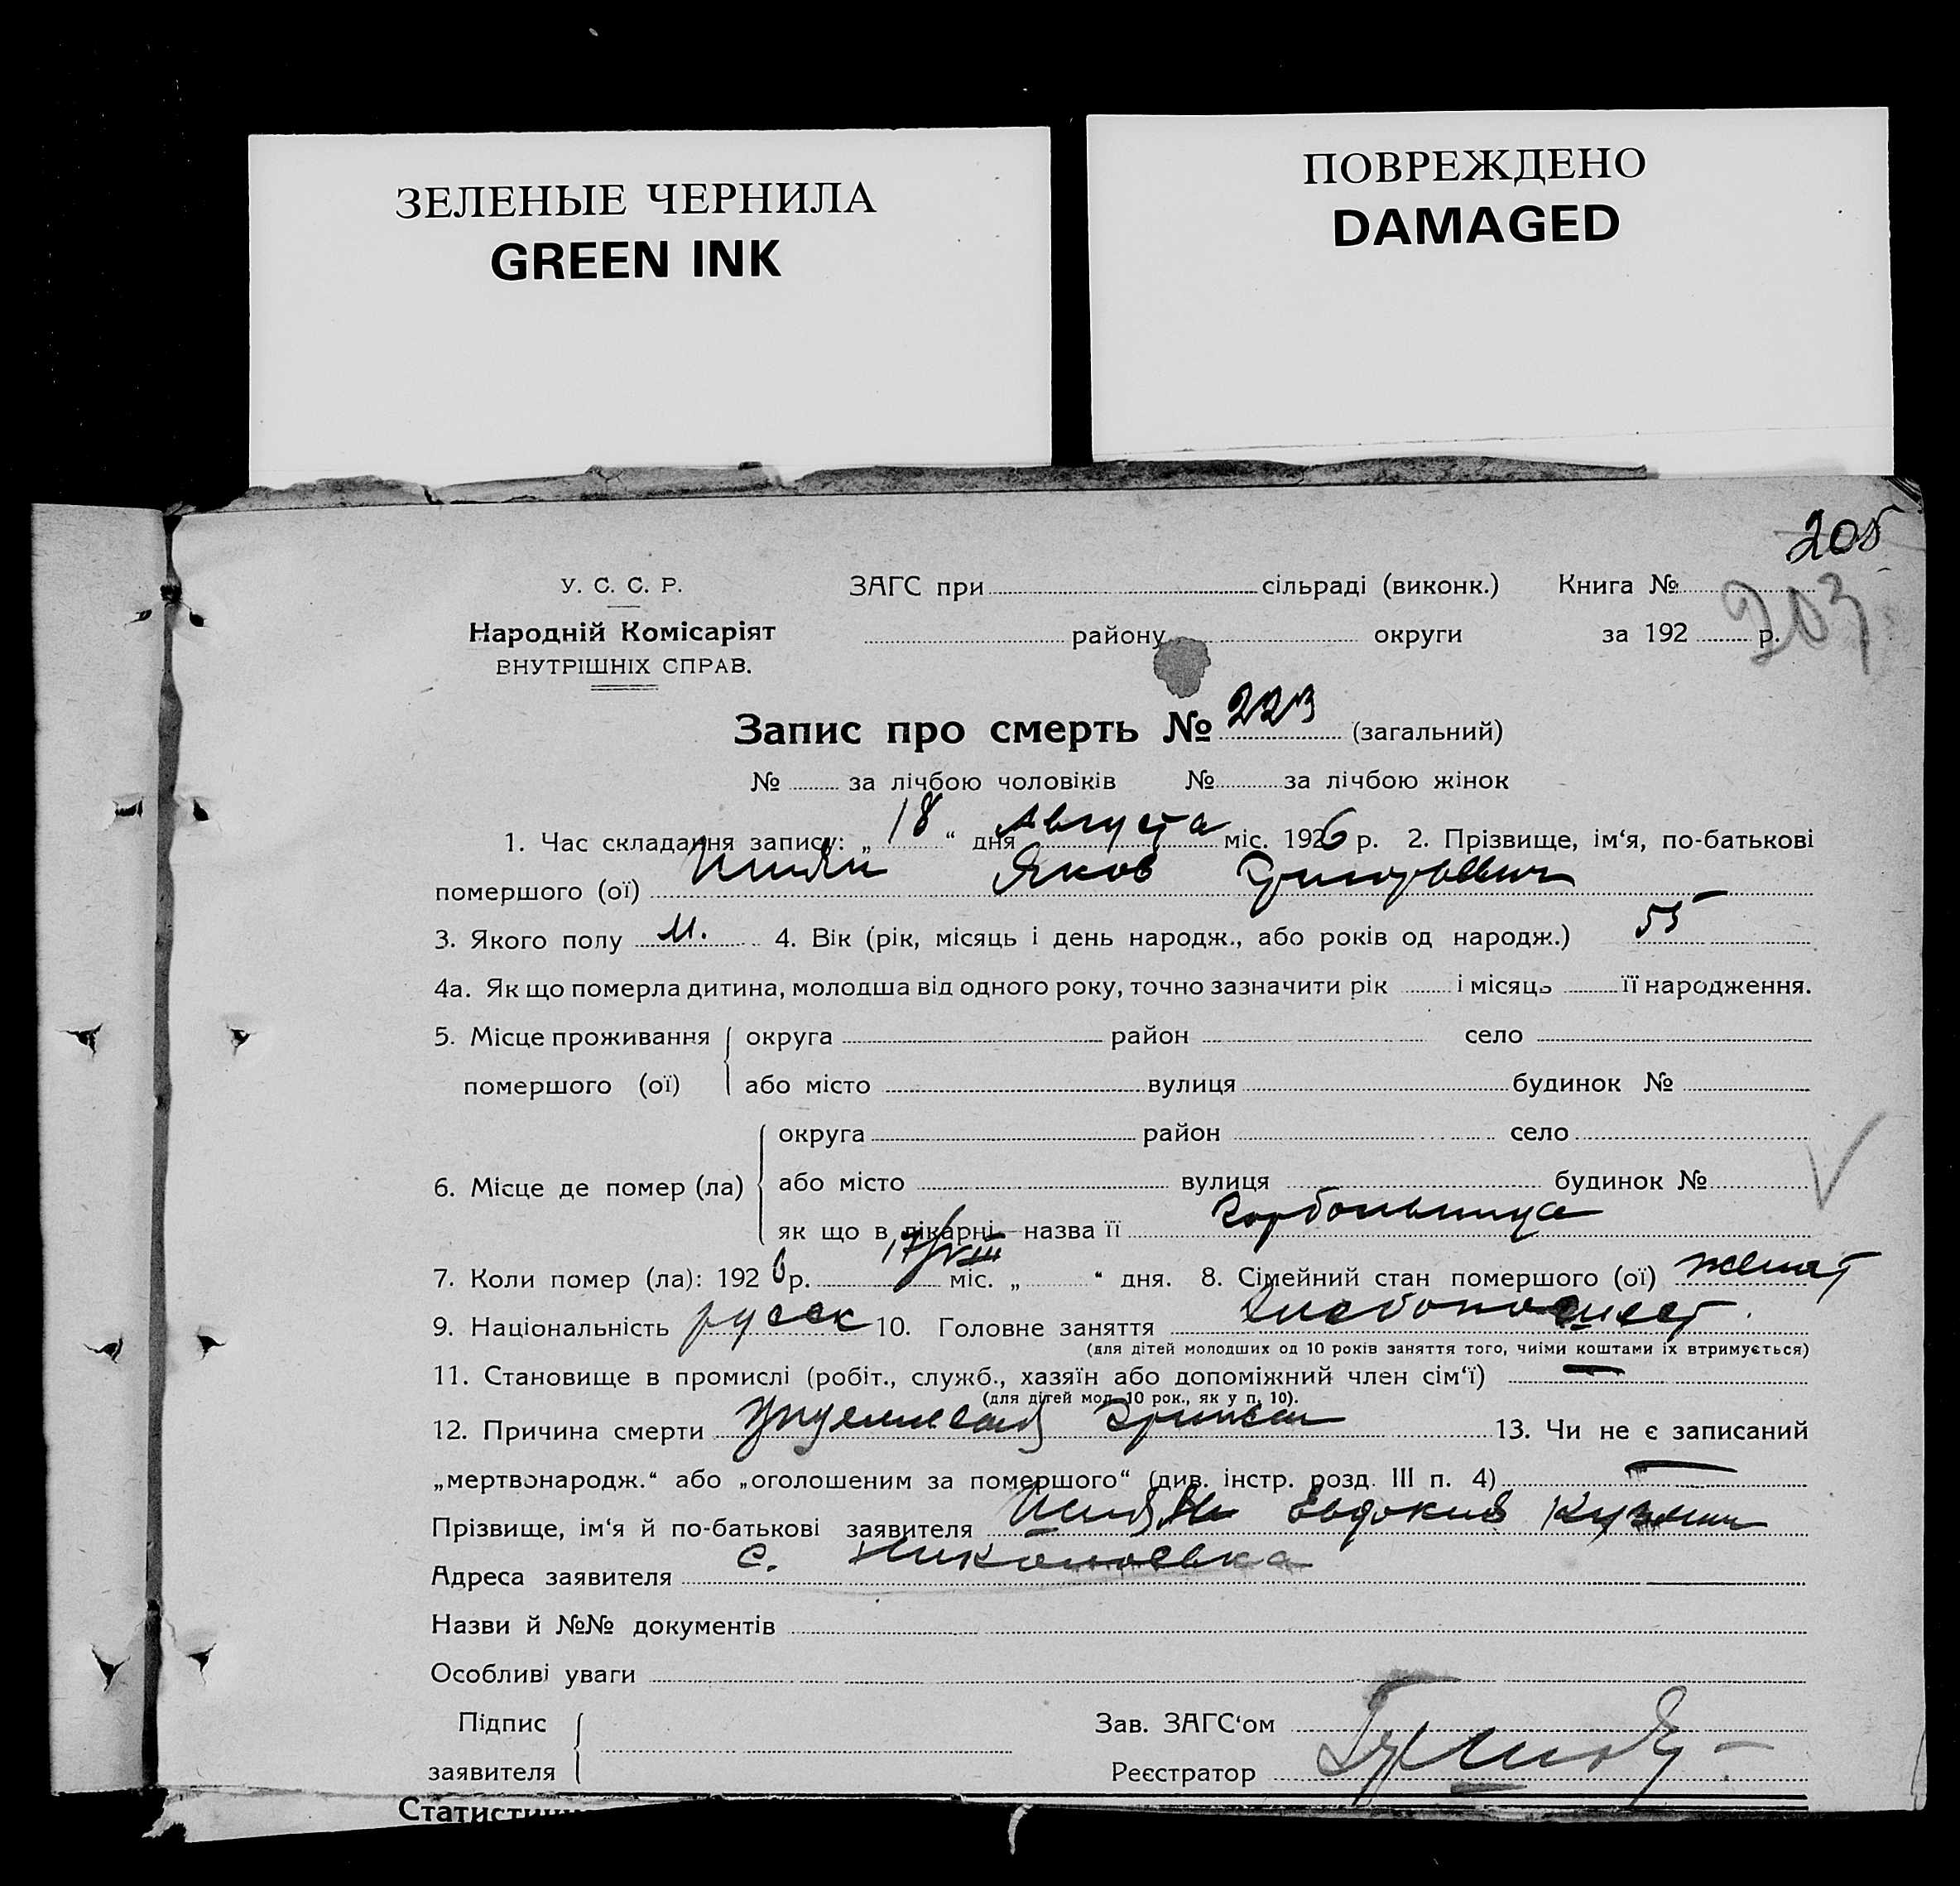 ЗЕЛЕНЫЕ ЧЕРНИЛА
GREEN INK
ПОВРЕЖДЕНО
DAMAGED
205
203
У. С. С. Р.
Народній Комісаріят
ВНУТРІШНІХ СПРАВ.
ЗАГС при сільраді (виконк.) Книга №
району округи за 192 р.
Запис про смерть № 223 (загальний)
№ за лічбою чоловіків № за лічбою жінок
1. Час складання запису: „ 18 “ дня Августа міс. 1926 р. 2. Прізвище, ім‘я, по-батькові
помершого (ої) Яков Григорьевич
3. Якого полу М. 4. Вік (рік, місяць і день народж., або років од народж.) 55
4а. Як що померла дитина, молодша від одного року, точно зазначити рік і місяць її народження.
5. Місце проживання округа район село
помершого (ої) або місто вулиця будинок №
округа район село
6. Місце де помер (ла) або місто вулиця будинок №
як що в лікарні—назва її Горбольница
7. Коли помер (ла): 1926 р. 17/VIII міс. „ “ дня. 8. Сімейний стан помершого (ої) женат
9. Національність русск 10. Головне заняття
(для дітей молодших од 10 років заняття того, чиїми коштами їх втримується)
11. Становище в промислі (робіт., служб., хазяїн або допоміжний член сім‘ї) —
(для дітей мол. 10 рок., як у п. 10).
12. Причина смерти 13. Чи не є записаний
„мертвонародж.“ або „оголошеним за помершого“ (див. інстр. розд. III п. 4) —
Прізвище, ім‘я й по-батькові заявителя Евдоким Кузьмич
Адреса заявителя с. Николаевка
Назви й №№ документів
Особливі уваги
Підпис Зав. ЗАГС‘ом
заявителя Реєстратор